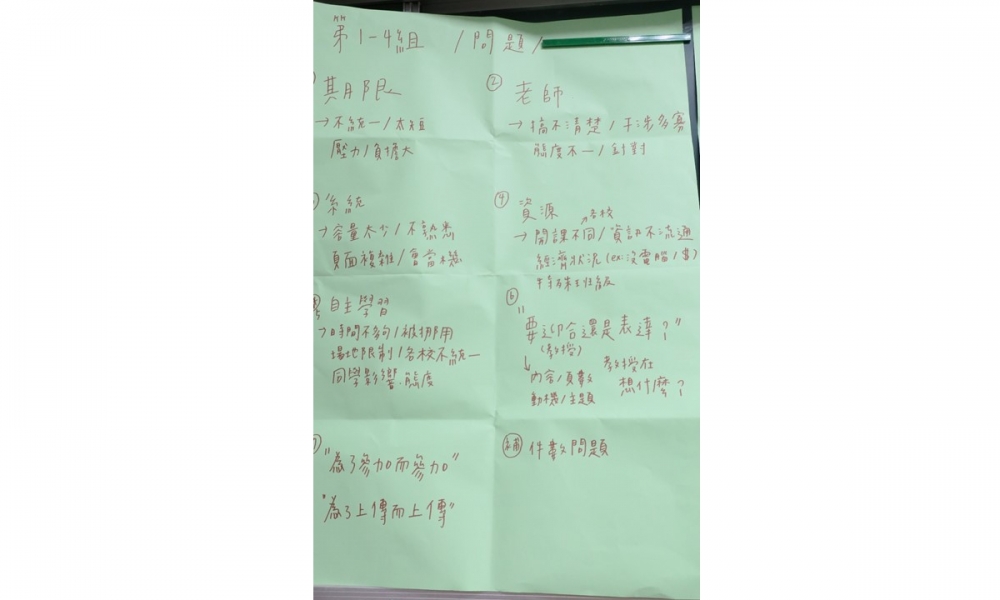 第1-4組 /問題/
期限
→不統一/太短
壓力/負擔大
② 老師
→搞不清楚/干涉多寡
態度不一/針對
系統
→容量太少/不熟悉
頁面複雜/會當機
④ 資源
各校
→開課不同/資訊不流通
經濟狀況(ex:沒電腦/書)
特殊生性設
自主學習
→時間不夠/被挪用
場地限制/各校不統一
同學影響.態度
⑥
"要迎合還是表達?"
(教授)
內容/頁數
動機/主題
教授在
想什麼?
"為了參加而參加"
"為了上傳而上傳"
補 件數問題